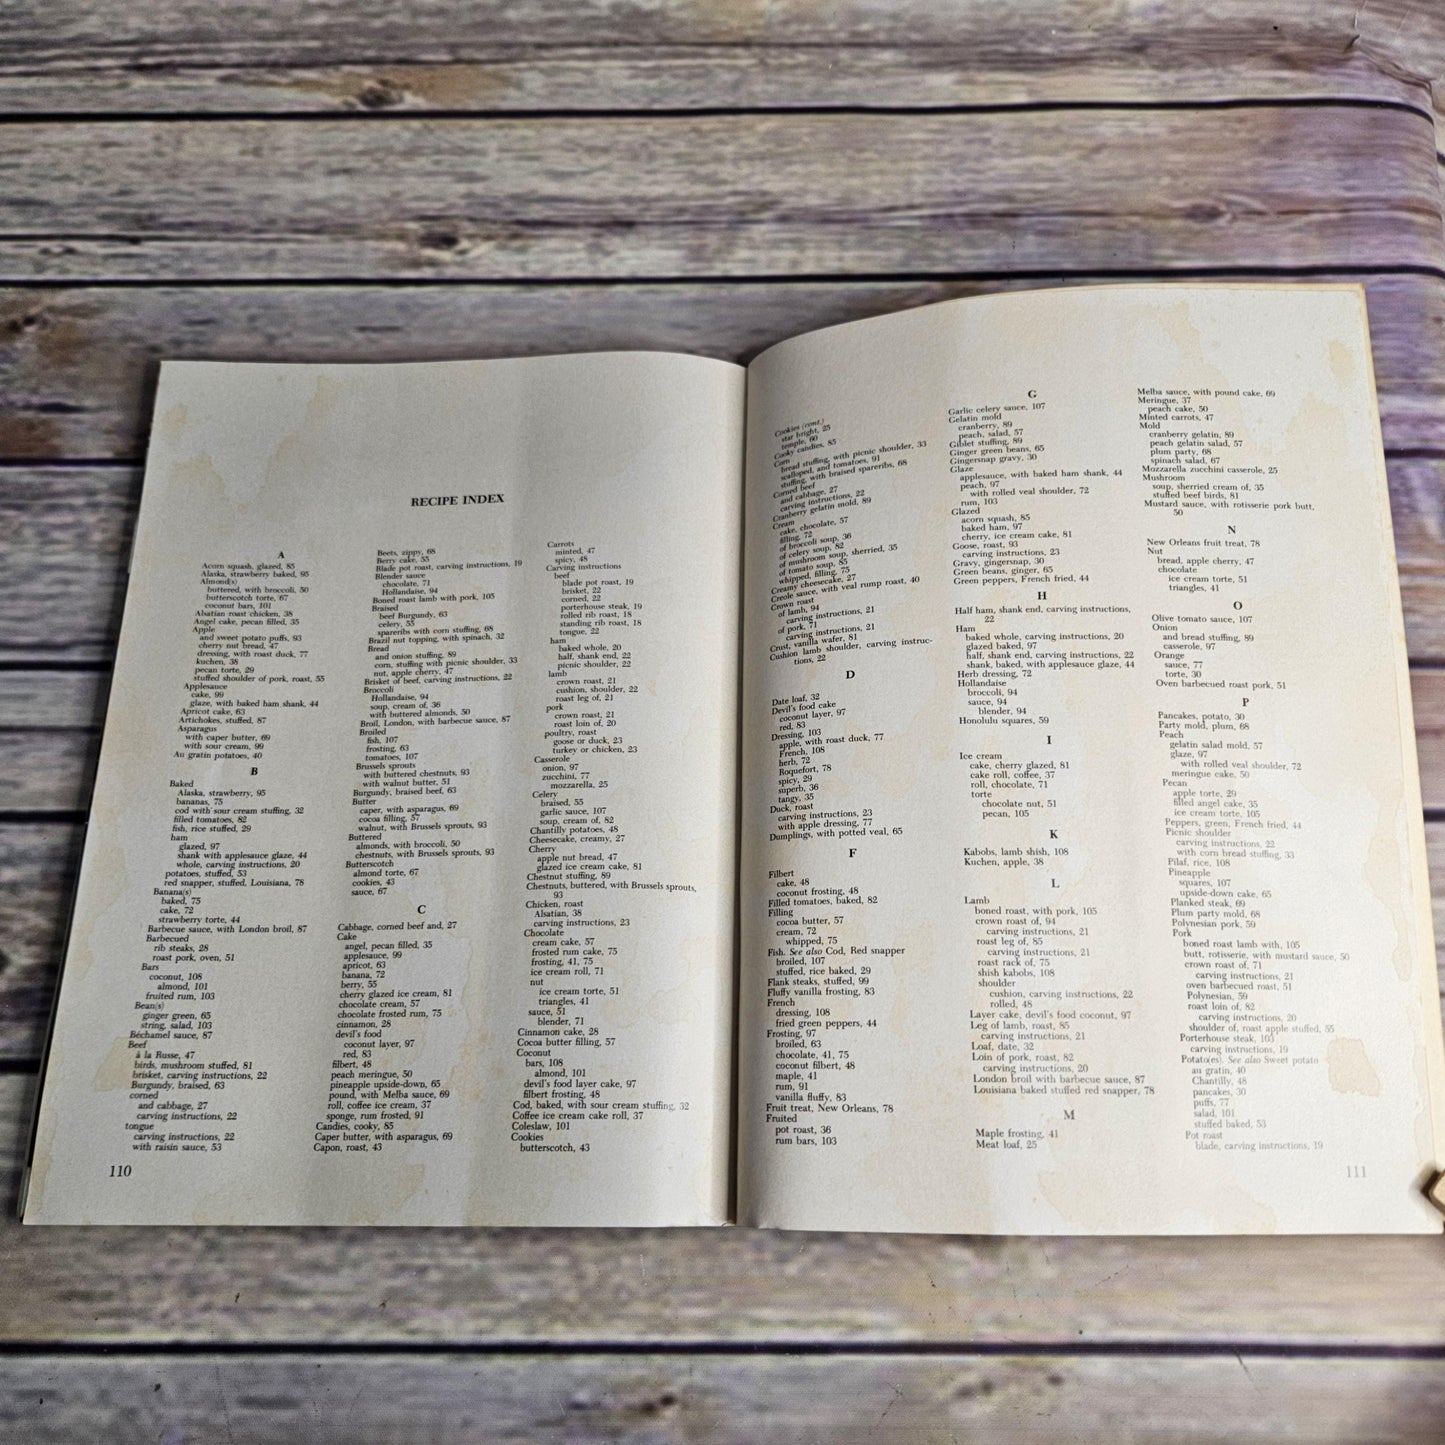 RECIPE INDEX
A
Acorn squash, glazed, 85
Alaska, strawberry baked, 95
Almond(s)
buttered, with broccoli, 50
butterscotch torte, 67
coconut bars, 101
Alsatian roast chicken, 38
Angel cake, pecan filled, 35
Apple
and sweet potato puffs, 93
cherry nut bread, 47
dressing, with roast duck, 77
kuchen, 38
pecan torte, 29
stuffed shoulder of pork, roast, 55
Applesauce
cake, 99
glaze, with baked ham shank, 44
Apricot cake, 63
Artichokes, stuffed, 87
Asparagus
with caper butter, 69
with sour cream, 99
Au gratin potatoes, 40
B
Baked
Alaska, strawberry, 95
bananas, 75
cod with sour cream stuffing, 32
filled tomatoes, 82
fish, rice stuffed, 29
ham
glazed, 97
shank with applesauce glaze, 44
whole, carving instructions, 20
potatoes, stuffed, 53
red snapper, stuffed, Louisiana, 78
Banana(s)
baked, 75
cake, 72
strawberry torte, 44
Barbecue sauce, with London broil, 87
Barbecued
rib steaks, 28
roast pork, oven, 51
Bars
coconut, 108
almond, 101
fruited rum, 103
Bean(s)
ginger green, 65
string, salad, 103
Béchamel sauce, 87
Beef
à la Russe, 47
birds, mushroom stuffed, 81
brisket, carving instructions, 22
Burgundy, braised, 63
corned
and cabbage, 27
carving instructions, 22
tongue
carving instructions, 22
with raisin sauce, 53
Beets, zippy, 68
Berry cake, 55
Blade pot roast, carving instructions, 19
Blender sauce
chocolate, 71
Hollandaise, 94
Boned roast lamb with pork, 105
Braised
beef Burgundy, 63
celery, 55
spareribs with corn stuffing, 68
Brazil nut topping, with spinach, 32
Bread
and onion stuffing, 89
corn, stuffing with picnic shoulder, 33
nut, apple cherry, 47
Brisket of beef, carving instructions, 22
Broccoli
Hollandaise, 94
soup, cream of, 36
with buttered almonds, 50
Broil, London, with barbecue sauce, 87
Broiled
fish, 107
frosting, 63
tomatoes, 107
Brussels sprouts
with buttered chestnuts, 93
with walnut butter, 51
Burgundy, braised beef, 63
Butter
caper, with asparagus, 69
cocoa filling, 57
walnut, with Brussels sprouts, 93
Buttered
almonds, with broccoli, 50
chestnuts, with Brussels sprouts, 93
Butterscotch
almond torte, 67
cookies, 43
sauce, 67
C
Cabbage, corned beef and, 27
Cake
angel, pecan filled, 35
applesauce, 99
apricot, 63
banana, 72
berry, 55
cherry glazed ice cream, 81
chocolate cream, 57
chocolate frosted rum, 75
cinnamon, 28
devil's food
coconut layer, 97
red, 83
filbert, 48
peach meringue, 50
pineapple upside-down, 65
pound, with Melba sauce, 69
roll, coffee ice cream, 37
sponge, rum frosted, 91
Candies, cooky, 85
Caper butter, with asparagus, 69
Capon, roast, 43
Carrots
minted, 47
spicy, 48
Carving instructions
beef
blade pot roast, 19
brisket, 22
corned, 22
porterhouse steak, 19
rolled rib roast, 18
standing rib roast, 18
tongue, 22
ham
baked whole, 20
half, shank end, 22
picnic shoulder, 22
lamb
crown roast, 21
cushion, shoulder, 22
roast leg of, 21
pork
crown roast, 21
roast loin of, 20
poultry, roast
goose or duck, 23
turkey or chicken, 23
Casserole
onion, 97
zucchini, 77
mozzarella, 25
Celery
braised, 55
garlic sauce, 107
soup, cream of, 82
Chantilly potatoes, 48
Cheesecake, creamy, 27
Cherry
apple nut bread, 47
glazed ice cream cake, 81
Chestnut stuffing, 89
Chestnuts, buttered, with Brussels sprouts,
93
Chicken, roast
Alsatian, 38
carving instructions, 23
Chocolate
cream cake, 57
frosted rum cake, 75
frosting, 41, 75
ice cream roll, 71
nut
ice cream torte, 51
triangles, 41
sauce, 51
blender, 71
Cinnamon cake, 28
Cocoa butter filling, 57
Coconut
bars, 108
almond, 101
devil's food layer cake, 97
filbert frosting, 48
Cod, baked, with sour cream stuffing, 32
Coffee ice cream cake roll, 37
Coleslaw, 101
Cookies
butterscotch, 43
110
Cookies (cont.)
star bright, 25
temple, 60
Cooky candies, 85
Corn
bread stuffing, with picnic shoulder, 33
scalloped, and tomatoes, 91
stuffing, with braised spareribs, 68
Corned beef
and cabbage, 27
carving instructions, 22
Cranberry gelatin mold, 89
Cream
cake, chocolate, 57
filling, 72
of broccoli soup, 36
of celery soup, 82
of mushroom soup, sherried, 35
of tomato soup, 85
whipped, filling, 75
Creamy cheesecake, 27
Creole sauce, with veal rump roast, 40
Crown roast
of lamb, 94
carving instructions, 21
of pork, 71
carving instructions, 21
Crust, vanilla wafer, 81
Cushion lamb shoulder, carving instruc-
tions, 22
D
Date loaf, 32
Devil's food cake
coconut layer, 97
red, 83
Dressing, 103
apple, with roast duck, 77
French, 108
herb, 72
Roquefort, 78
spicy, 29
superb, 36
tangy, 35
Duck, roast
carving instructions, 23
with apple dressing, 77
Dumplings, with potted veal, 65
F
Filbert
cake, 48
coconut frosting, 48
Filled tomatoes, baked, 82
Filling
cocoa butter, 57
cream, 72
whipped, 75
Fish. See also Cod, Red snapper
broiled, 107
stuffed, rice baked, 29
Flank steaks, stuffed, 99
Fluffy vanilla frosting, 83
French
dressing, 108
fried green peppers, 44
Frosting, 97
broiled, 63
chocolate, 41, 75
coconut filbert, 48
maple, 41
rum, 91
vanilla fluffy, 83
Fruit treat, New Orleans, 78
Fruited
pot roast, 36
rum bars, 103
G
Garlic celery sauce, 107
Gelatin mold
cranberry, 89
peach, salad, 57
Giblet stuffing, 89
Ginger green beans, 65
Gingersnap gravy, 30
Glaze
applesauce, with baked ham shank, 44
peach, 97
with rolled veal shoulder, 72
rum, 103
Glazed
acorn squash, 85
baked ham, 97
cherry, ice cream cake, 81
Goose, roast, 93
carving instructions, 23
Gravy, gingersnap, 30
Green beans, ginger, 65
Green peppers, French fried, 44
H
Half ham, shank end, carving instructions,
22
Ham
baked whole, carving instructions, 20
glazed baked, 97
half, shank end, carving instructions, 22
shank, baked, with applesauce glaze, 44
Herb dressing, 72
Hollandaise
broccoli, 94
sauce, 94
blender, 94
Honolulu squares, 59
I
Ice cream
cake, cherry glazed, 81
cake roll, coffee, 37
roll, chocolate, 71
torte
chocolate nut, 51
pecan, 105
K
Kabobs, lamb shish, 108
Kuchen, apple, 38
L
Lamb
boned roast, with pork, 105
crown roast of, 94
carving instructions, 21
roast leg of, 85
carving instructions, 21
roast rack of, 75
shish kabobs, 108
shoulder
cushion, carving instructions, 22
rolled, 48
Layer cake, devil's food coconut, 97
Leg of lamb, roast, 85
carving instructions, 21
Loaf, date, 32
Loin of pork, roast, 82
carving instructions, 20
London broil with barbecue sauce, 87
Louisiana baked stuffed red snapper, 78
M
Maple frosting, 41
Meat loaf, 25
Melba sauce, with pound cake, 69
Meringue, 37
peach cake, 50
Minted carrots, 47
Mold
cranberry gelatin, 89
peach gelatin salad, 57
plum party, 68
spinach salad, 67
Mozzarella zucchini casserole, 25
Mushroom
soup, sherried cream of, 35
stuffed beef birds, 81
Mustard sauce, with rotisserie pork butt,
50
N
New Orleans fruit treat, 78
Nut
bread, apple cherry, 47
chocolate
ice cream torte, 51
triangles, 41
O
Olive tomato sauce, 107
Onion
and bread stuffing, 89
casserole, 97
Orange
sauce, 77
torte, 30
Oven barbecued roast pork, 51
P
Pancakes, potato, 30
Party mold, plum, 68
Peach
gelatin salad mold, 57
glaze, 97
with rolled veal shoulder, 72
meringue cake, 50
Pecan
apple torte, 29
filled angel cake, 35
ice cream torte, 105
Peppers, green, French fried, 44
Picnic shoulder
carving instructions, 22
with corn bread stuffing, 33
Pilaf, rice, 108
Pineapple
squares, 107
upside-down cake, 65
Planked steak, 69
Plum party mold, 68
Polynesian pork, 59
Pork
boned roast lamb with, 105
butt, rotisserie, with mustard sauce, 50
crown roast of, 71
carving instructions, 21
oven barbecued roast, 51
Polynesian, 59
roast loin of, 82
carving instructions, 20
shoulder of, roast apple stuffed, 55
Porterhouse steak, 103
carving instructions, 19
Potato(es). See also Sweet potato
au gratin, 40
Chantilly, 48
pancakes, 30
puffs, 77
salad, 101
stuffed baked, 53
Pot roast
blade, carving instructions, 19
111